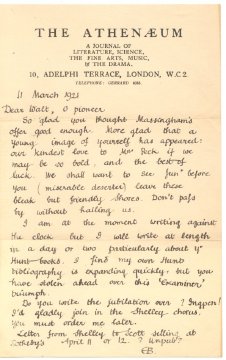 THE ATHENÆUM
A JOURNAL OF
LITERATURE, SCIENCE,
THE FINE ARTS, MUSIC,
& THE DRAMA.
10, ADELPHI TERRACE, LONDON, W.C.2
TELEPHONE: GERRARD
11 March 1921
Dear Walt, O pioneer
So glad you thought Massingham's
offer good enough. More glad that a
young image of yourself has appeared:
our kindest love to Mrs Peck if we
may be so bold, and the best of
luck. We shall want to see 'Jun' before
you (miserable deserter) leave these
bleak but friendly shores. Don't pass
by without hailing us.
I am at the moment writing against
the clock but I will write at length
in a day or two particularly about yr
Hunt books. I find my own Hunt
bibliography is expanding quickly: but you
have stolen ahead over this 'Examiner'
triumph.
Do you write the jubilation over ? Ingpen!
I'd gladly join in the Shelley chorus.
You must order me later.
Letter from Shelley to Scott selling at
Sotheby's April 11 or 12. ? Unpubd.
EB